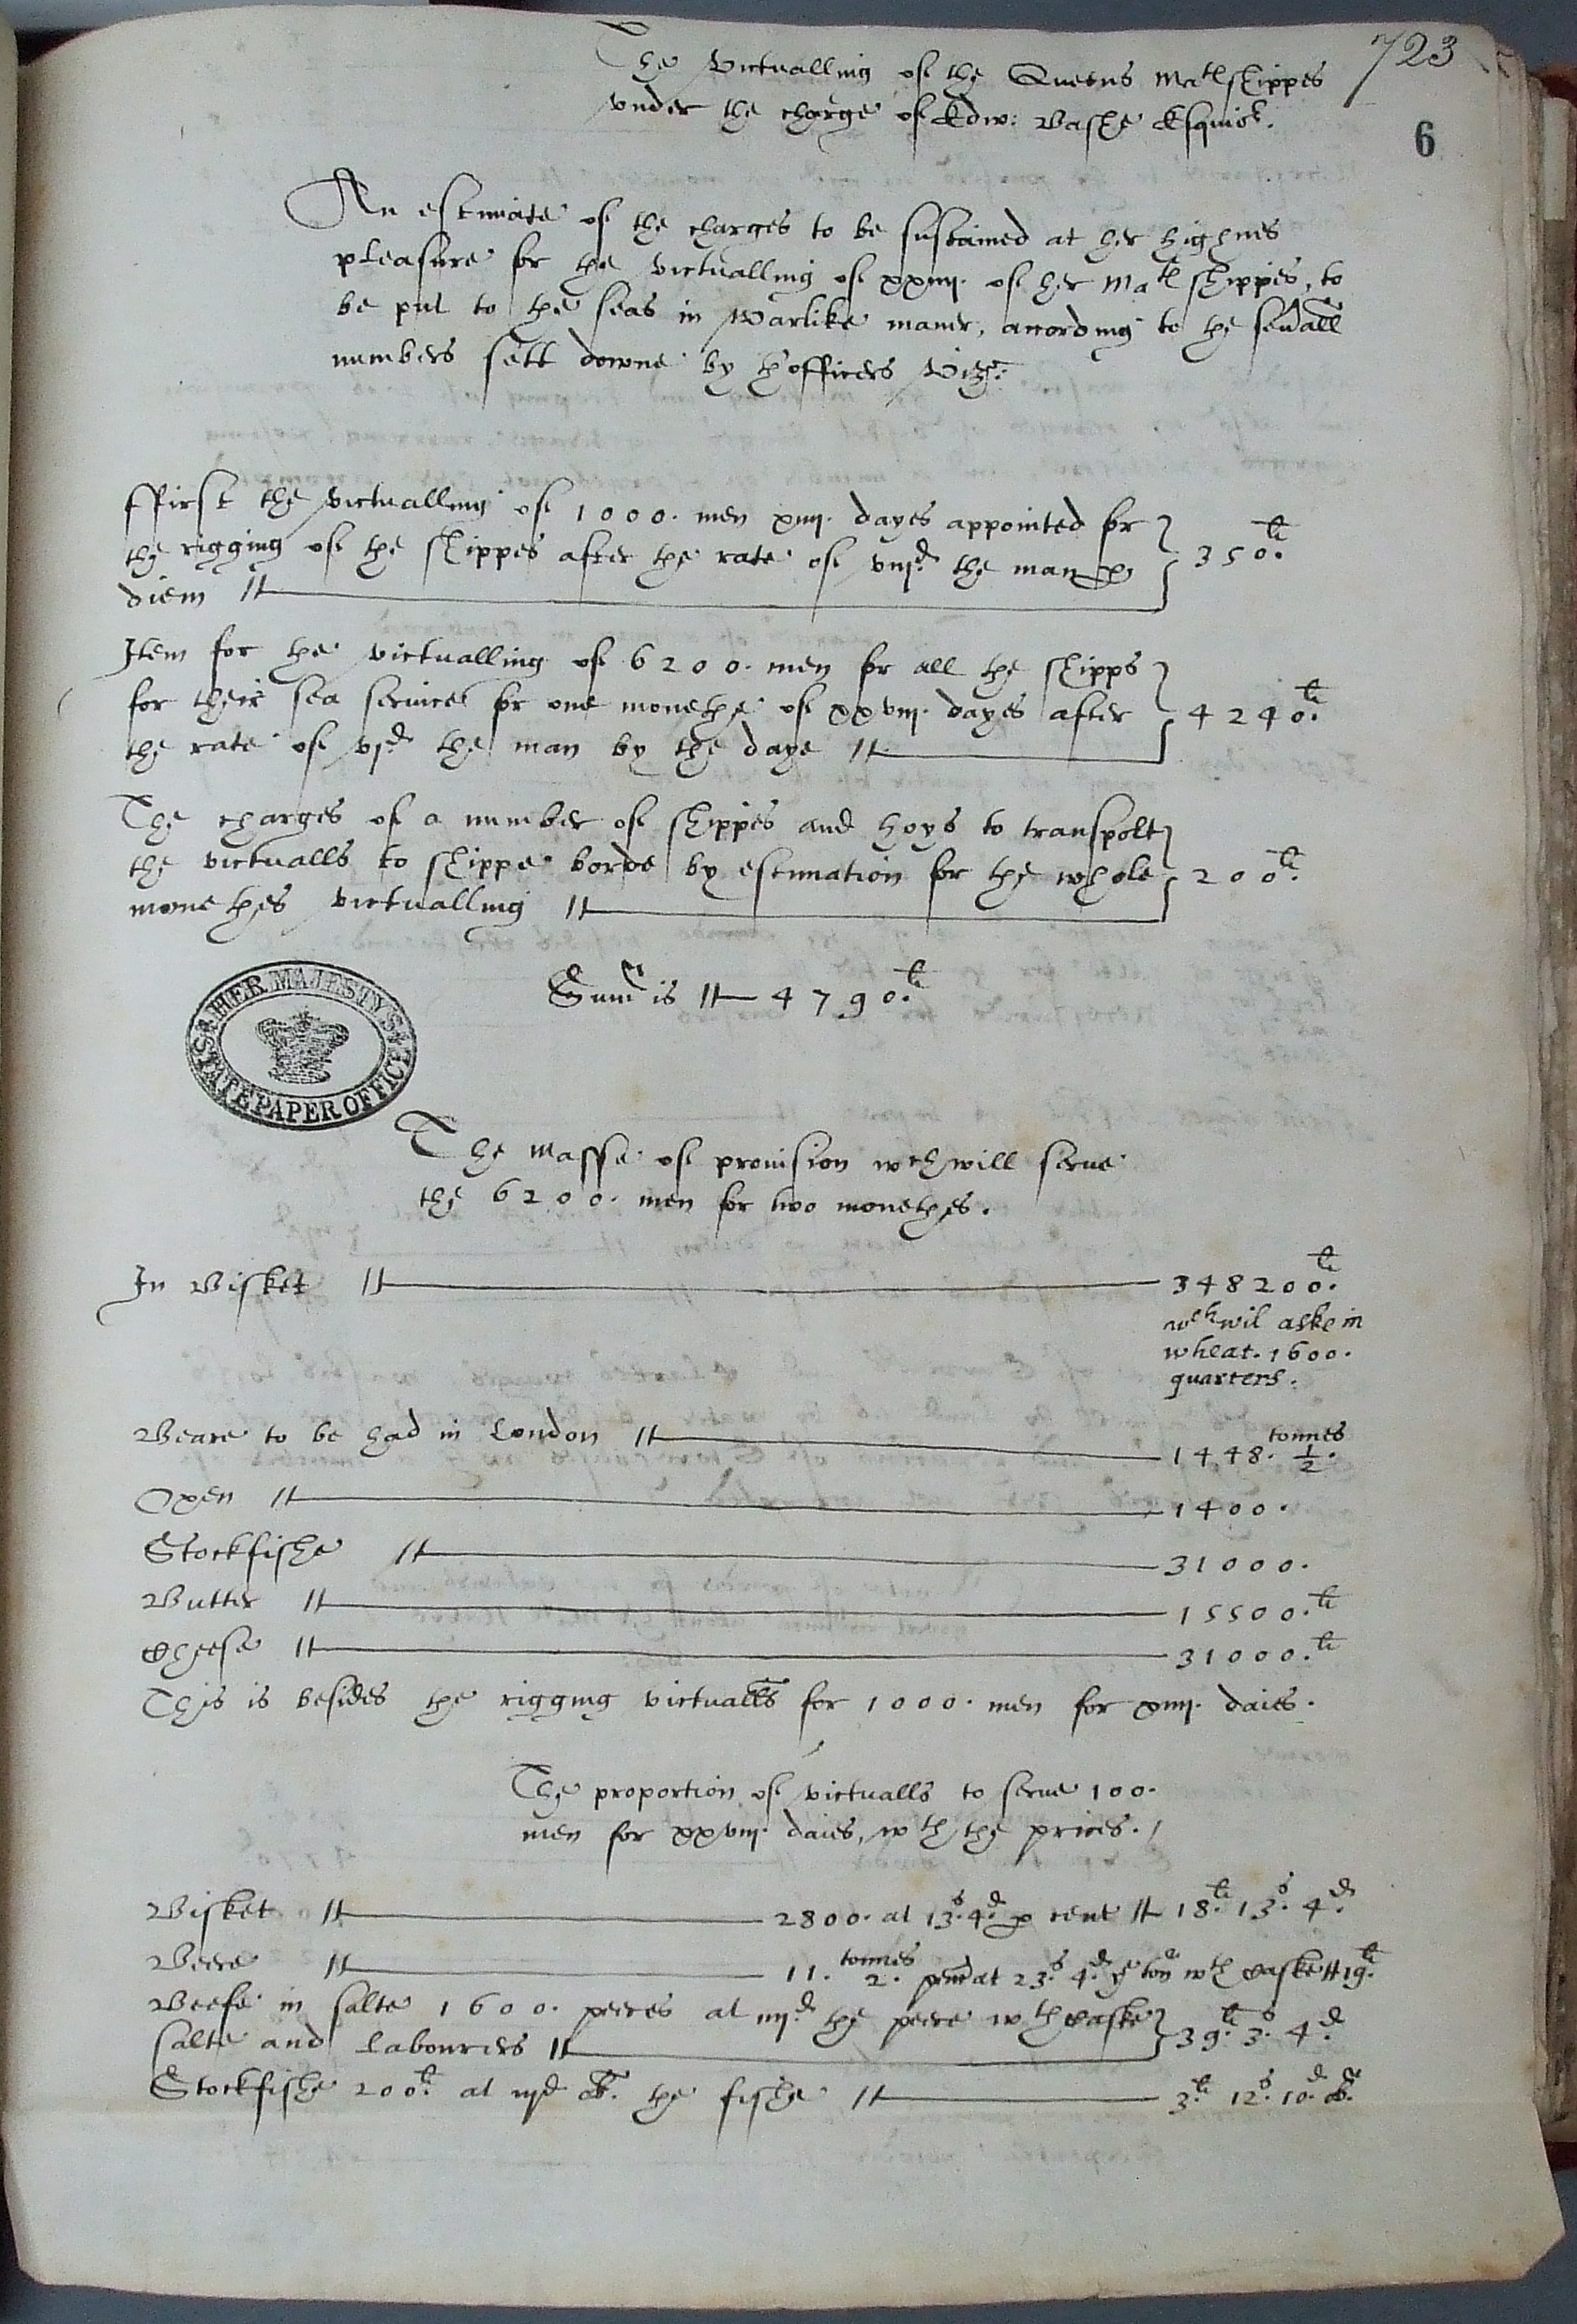 723
6
The victualling of the Queens Matꝭ shippes
vnder the charge of Edw: Bashe Esquioʳ.
An estimate of the charges to be sustained at her highnes
pleasure for the victualling of xxiiij. of her Matꝭ shippes, to
be put to the seas in warlike maner, according to the seuall
numbers sett downe by thofficers vizᵗ.
ffirst the victualling of 1000. men xiiij. dayes appointed for
the rigging of the shippes after the rate of vjᵈ. the man ꝑ
diem // 350ˡⁱ.
Item for the victualling of 6200. men for all the shipps
for their sea seruice for one monethe of xxviij. dayes after
the rate of vjᵈ. the man by the daye // 4240ˡⁱ.
The charges of a number of shippes and hoys to transport
the victualls to shippe borde by estimation for the whole
monethes victualling // 200ˡⁱ.
HER MAJESTY'S STATE PAPER OFFICE
Suma is // 4790ˡⁱ.
The masse of prouision wᶜʰ will serue
the 6200. men for two monethes.
In Bisket // 348200ˡⁱ.
wᶜʰ wil aske in
wheat. 1600.
quarters.
Beare to be had in London // 1448. ½. tonnes
Oxen // 1400.
Stockfishe // 31000.
Butter // 15500.ˡⁱ
Cheese // 31000.ˡⁱ
This is besides the rigging victualls for 1000. men for xiiij. daies.
The proportion of victualls to serue 100.
men for xxviij. daies, wᵗʰ the prices.
Bisket // 2800. at 13ˢ. 4ᵈ. ꝑ cent // 18ˡⁱ. 13ˢ. 4ᵈ.
Beere // 11. tonnes 2. at 23ˢ. 4ᵈ. yᵉ ton wᵗʰ Caske // 19ˡⁱ.
Beefe in salte 1600. peeces at the peece wᵗʰ Caske
salte and labourers // 39ˡⁱ. 3ˢ. 4ᵈ.
Stockfishe 200ᵗʰ. at iijᵈ ob. the fishe // 3ˡⁱ. 12ˢ. 10ᵈ. ob.